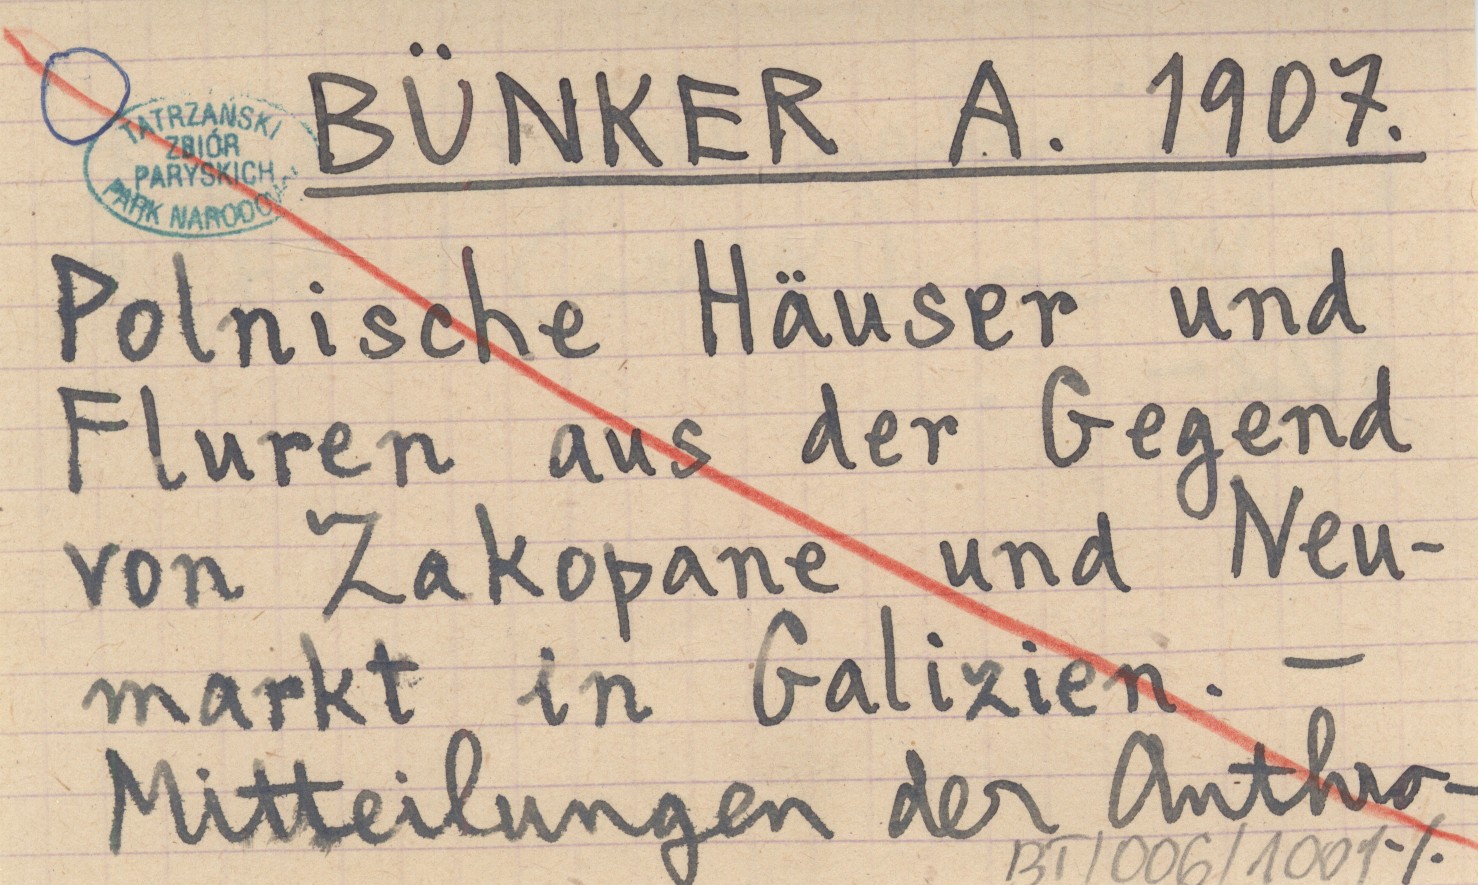 BÜNKER A. 1907.
TATRZAŃSKI
ZBIÓR
PARYSKICH
PARK NARODOWY
Polnische Häuser und
Fluren aus der Gegend
von Zakopane und Neu-
markt in Galizien. —
Mitteilungen der Anthro-
BT/006/1001-/.